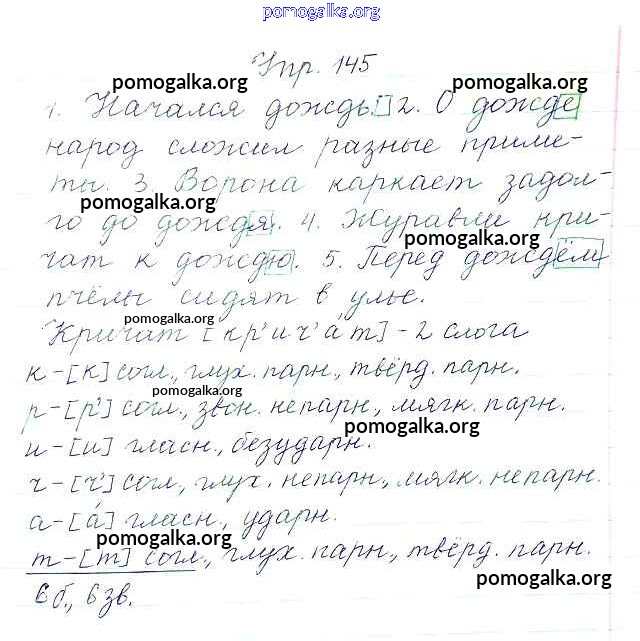 pomogalka.org
Упр. 145
pomogalka.org pomogalka.org
1. Начался дождь. 2. О дожде
народ сложил разные приме-
ты. 3. Ворона каркает задол-
pomogalka.org
го до дождя. 4. Журавли кри-
pomogalka.org
чат к дождю. 5. Перед дождём
пчёлы сидят в улье.
pomogalka.org
Кричат [кр'ич'áт] - 2 слога
к - [к] согл., глух. парн., твёрд. парн.
pomogalka.org
р - [р'] согл., звон. непарн., мягк. парн.
pomogalka.org
и - [и] гласн., безударн.
ч - [ч'] согл., глух. непарн., мягк. непарн.
а - [á] гласн., ударн.
pomogalka.org
т - [т] согл., глух. парн., твёрд. парн.
pomogalka.org
6 б., 6 зв.